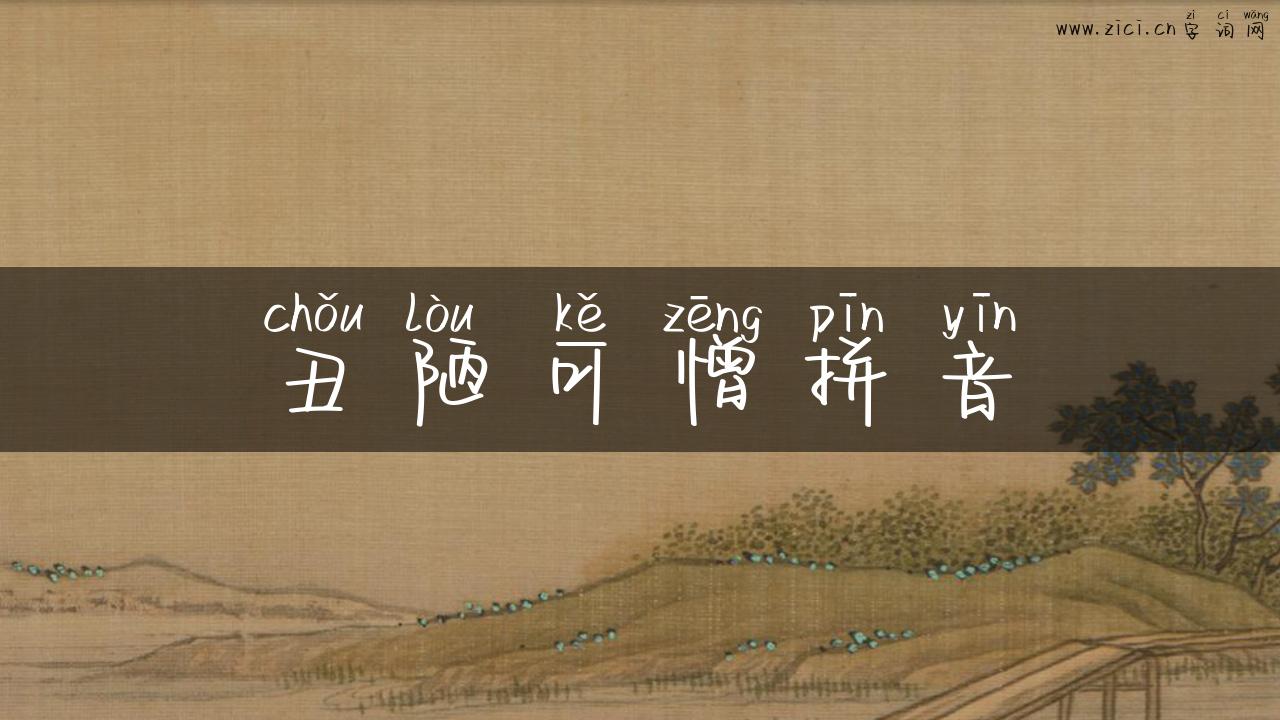 zì cí wǎng
www.zici.cn字词网
chǒu lòu kě zēng pīn yīn
丑陋可憎拼音